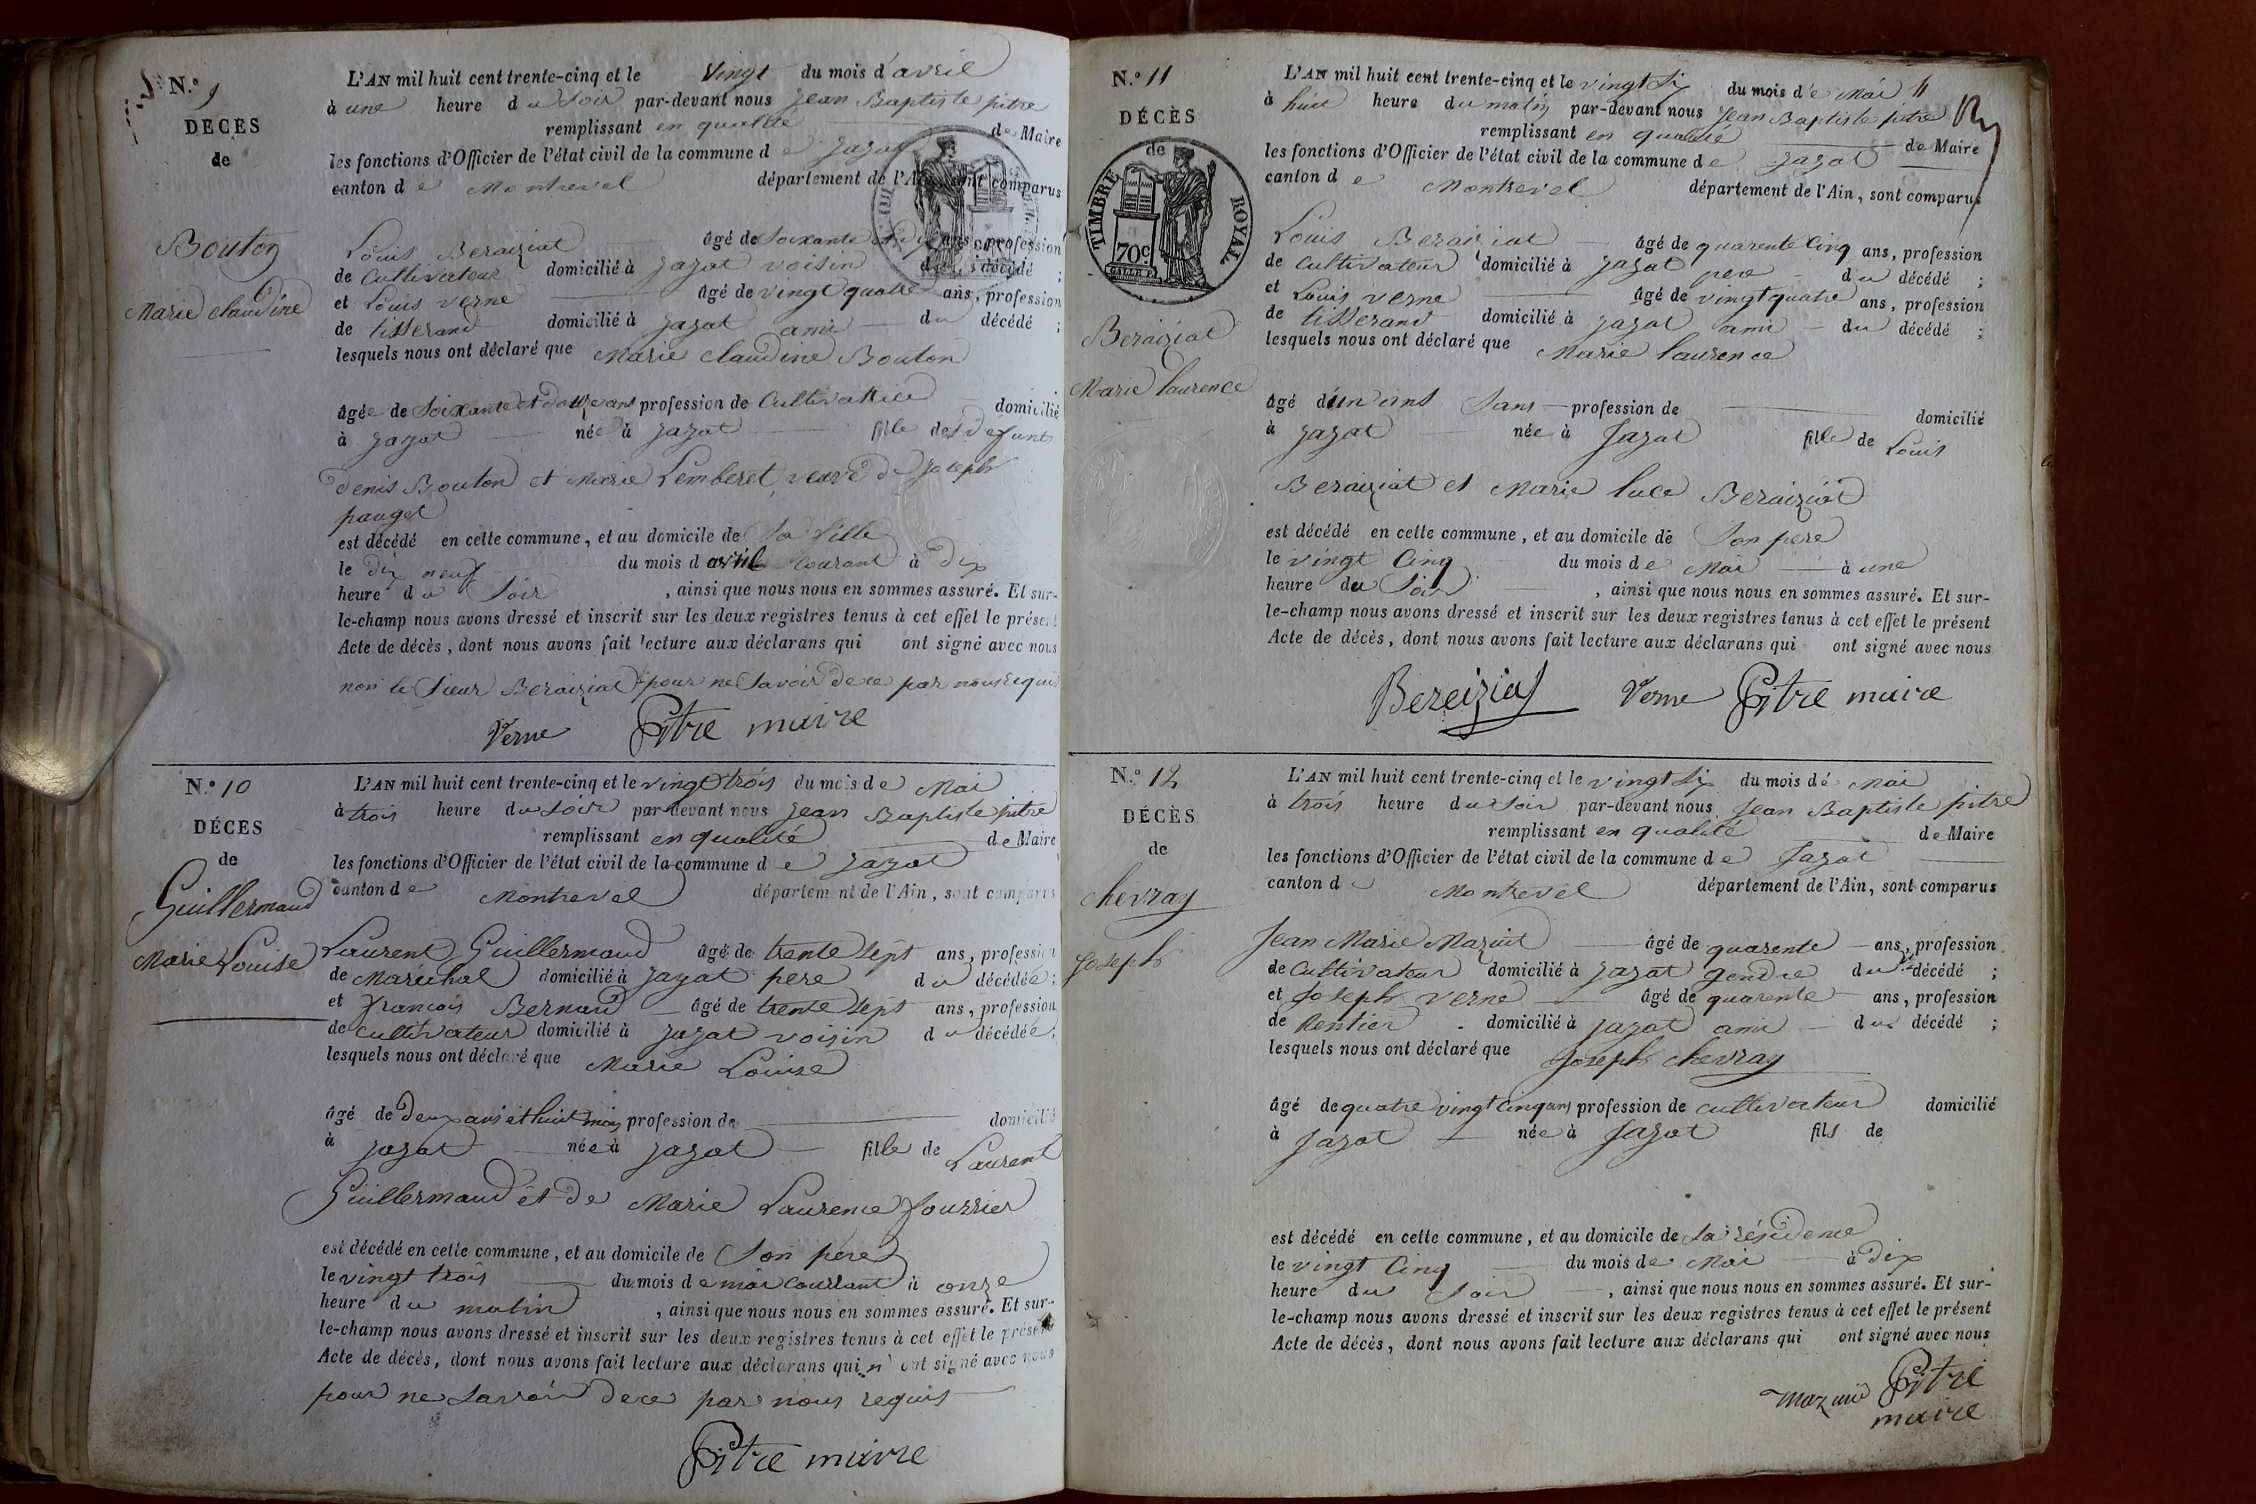 N.º 9
DÉCÈS
de
Bouton
Marie claudine
L'AN mil huit cent trente-cinq et le Vingt du mois d'avril
à une heure du Soir par-devant nous Jean Baptiste pitre
remplissant en qualité de Maire
les fonctions d'Officier de l'état civil de la commune de Jayat
canton de Montrevel département de l'Ain, sont comparus
Louis Beraiziat âgé de Soixante et dix ans, profession
de Cultivateur domicilié à Jayat voisin du décédé ;
et Louis verne âgé de vingt quatre ans, profession
de tisserand domicilié à Jayat ami du décédé ;
lesquels nous ont déclaré que Marie Claudine Bouton
âgée de Soixante et douze ans profession de Cultivatrice domicilié
à Jayat née à Jayat fille des défunts
denis Bouton et Marie Lemberet veuve de Joseph
pauget
est décédé en cette commune, et au domicile de Sa fille
le dix neuf du mois d'avril Courant à dix
heure du Soir , ainsi que nous nous en sommes assuré. Et sur-
le-champ nous avons dressé et inscrit sur les deux registres tenus à cet effet le présent
Acte de décès, dont nous avons fait lecture aux déclarans qui ont signé avec nous
non le Sieur Beraiziat pour ne Savoir de ce par nous requis
Verne Pitre maire
N.º 10
DÉCÈS
de
Guillermaud
Marie Louise
L'AN mil huit cent trente-cinq et le vingt trois du mois de Mai
à trois heure du Soir par-devant nous Jean Baptiste pitre
remplissant en qualité de Maire
les fonctions d'Officier de l'état civil de la commune de Jayat
canton de Montrevel département de l'Ain, sont comparus
Laurent Guillermaud âgé de trente sept ans, profession
de Marechal domicilié à Jayat pere du décédée ;
et francois Bernard âgé de trente sept ans, profession
de cultivateur domicilié à Jayat voisin du décédée ;
lesquels nous ont déclaré que Marie Louise
âgé de Deux ans et huit mois profession de domicilié
à Jayat née à Jayat fille de Laurent
Guillermaud et de Marie Laurence fourrier
est décédé en cette commune, et au domicile de Son pere
le vingt trois du mois de mai courrant à onze
heure du matin , ainsi que nous nous en sommes assuré. Et sur-
le-champ nous avons dressé et inscrit sur les deux registres tenus à cet effet le présent
Acte de décès, dont nous avons fait lecture aux déclarans qui n'ont signé avec nous
pour ne Savoir de ce par nous requis
Pitre maire
N.º 11
DÉCÈS
de
TIMBRE ROYAL
70c.
Beraiziat
Marie laurence
L'AN mil huit cent trente-cinq et le vingt Six du mois de Mai
à huit heure du matin par-devant nous Jean Baptiste pitre
remplissant en qualité de Maire
les fonctions d'Officier de l'état civil de la commune de Jayat
canton de Montrevel département de l'Ain, sont comparus
Louis Beraiziat âgé de quarente Cinq ans, profession
de Cultivateur domicilié à Jayat pere du décédé ;
et Louis verne âgé de vingt quatre ans, profession
de tisserand domicilié à Jayat ami du décédé ;
lesquels nous ont déclaré que Marie laurence
âgé d'un ans Sans profession de domicilié
à Jayat née à Jayat fille de Louis
Beraiziat et Marie luce Beraiziat
est décédé en cette commune, et au domicile de Son pere
le vingt Cinq du mois de Mai à une
heure du Soir , ainsi que nous nous en sommes assuré. Et sur-
le-champ nous avons dressé et inscrit sur les deux registres tenus à cet effet le présent
Acte de décès, dont nous avons fait lecture aux déclarans qui ont signé avec nous
Bereiziat Verne Pitre maire
N.º 12
DÉCÈS
de
Chevray
Joseph
L'AN mil huit cent trente-cinq et le vingt Six du mois de Mai
à trois heure du Soir par-devant nous Jean Baptiste pitre
remplissant en qualité de Maire
les fonctions d'Officier de l'état civil de la commune de Jayat
canton de Montrevel département de l'Ain, sont comparus
Jean Marie Mazuit âgé de quarente ans, profession
de Cultivateur domicilié à Jayat gendre du décédé ;
et Joseph verne âgé de quarente ans, profession
de Rentier domicilié à Jayat ami du décédé ;
lesquels nous ont déclaré que Joseph Chevray
âgé de quatre vingt Cinq ans profession de cultivateur domicilié
à Jayat née à Jayat fils de
est décédé en cette commune, et au domicile de Sa résidence
le vingt Cinq du mois de Mai à dix
heure du Soir , ainsi que nous nous en sommes assuré. Et sur-
le-champ nous avons dressé et inscrit sur les deux registres tenus à cet effet le présent
Acte de décès, dont nous avons fait lecture aux déclarans qui ont signé avec nous
Pitre
maire